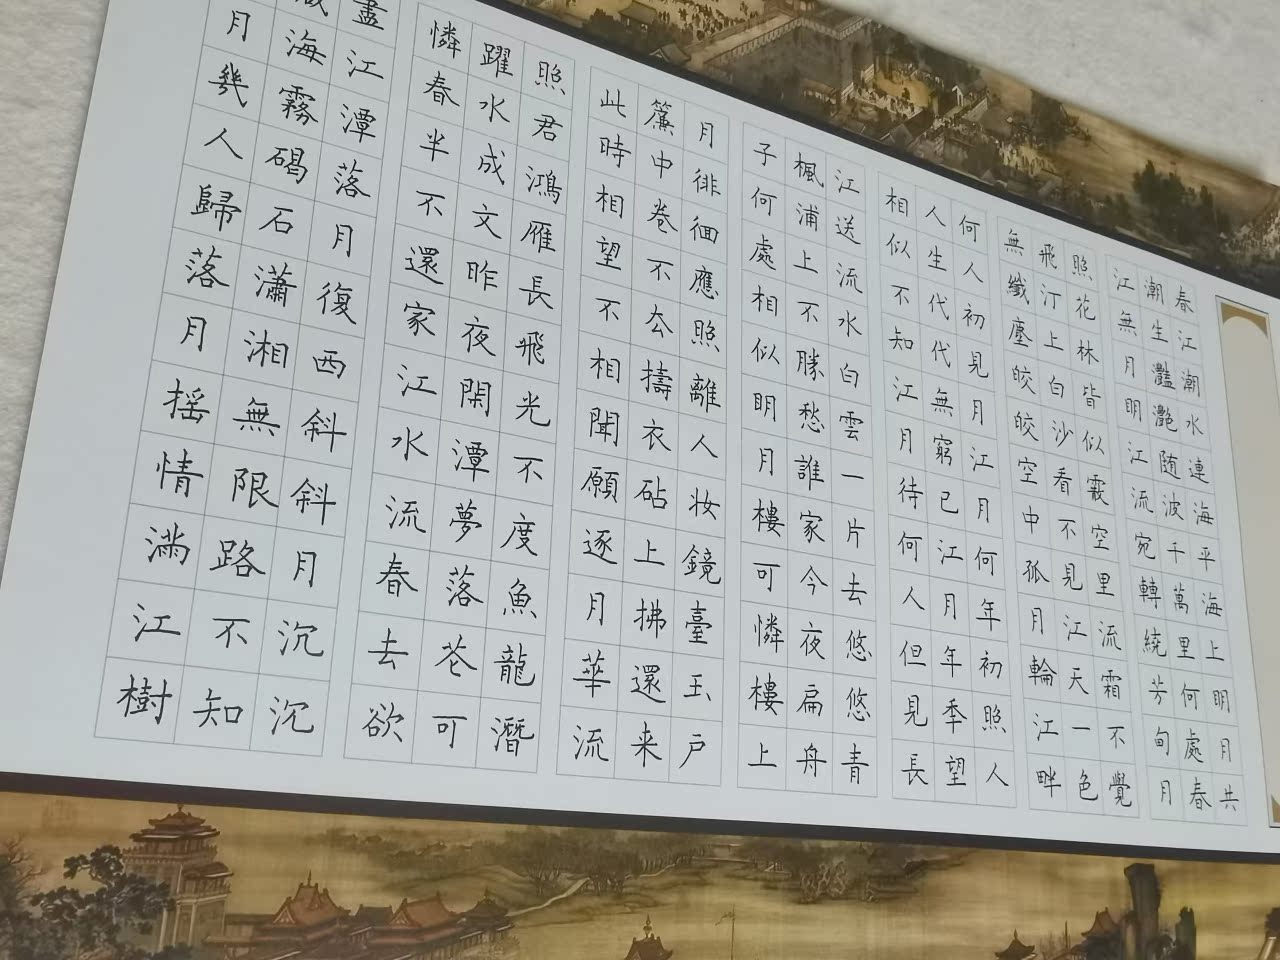 春江潮水連海平海上明月共
潮生灩灔随波千萬里何處春
江無月明江流宛轉繞芳甸月
照花林皆似霰空里流霜不覺
飛汀上白沙看不見江天一色
無纖塵皎皎空中孤月輪江畔
何人初見月江月何年初照人
人生代代無窮已江月年年望
相似不知江月待何人但見長
江送流水白雲一片去悠悠青
楓浦上不勝愁誰家今夜扁舟
子何處相似明月樓可憐樓上
月徘徊應照離人妝鏡臺玉户
簾中卷不去擣衣砧上拂還来
此時相望不相聞願逐月華流
照君鴻雁長飛光不度魚龍潛
躍水成文昨夜閑潭夢落花可
憐春半不還家江水流春去欲
盡江潭落月復西斜斜月沉沉
海霧碣石瀟湘無限路不知
月幾人歸落月摇情滿江樹